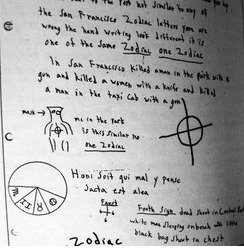 to the Post not similar to any of
the San Francisco Zodiac letters you are
wrong the hand writing look different it is
one of the same Zodiac one Zodiac
In San Francisco killed a man in the park with a
gun and killed a women with a knife and killed
a man in the taxi cab with a gun
me in the park
is this similar no
one Zodiac
Honi soit qui mal y pense
Jacta est alea
Faust
Forth sign dead shoot in Central Park
white man sleeping on bench with little
black boy shoot in chest
Zodiac